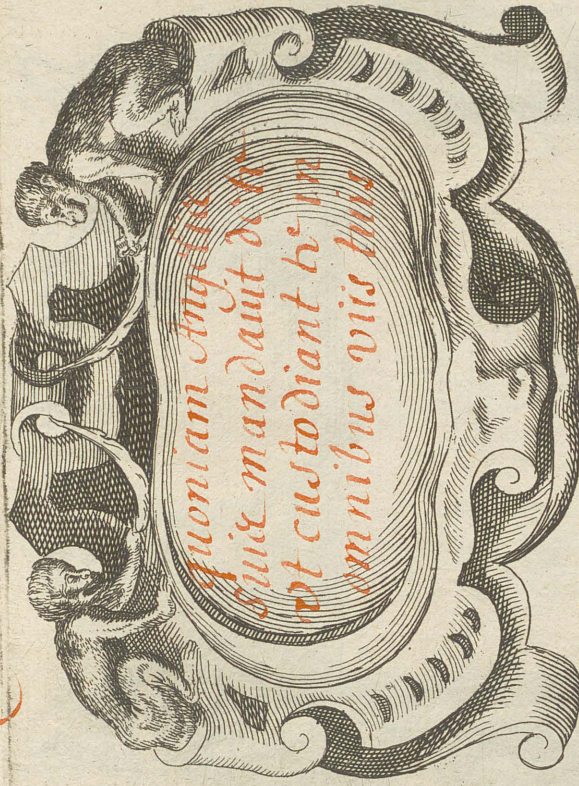 Quoniam Angelis
suis mandauit de te
vt custodiant te in
omnibus viis tuis